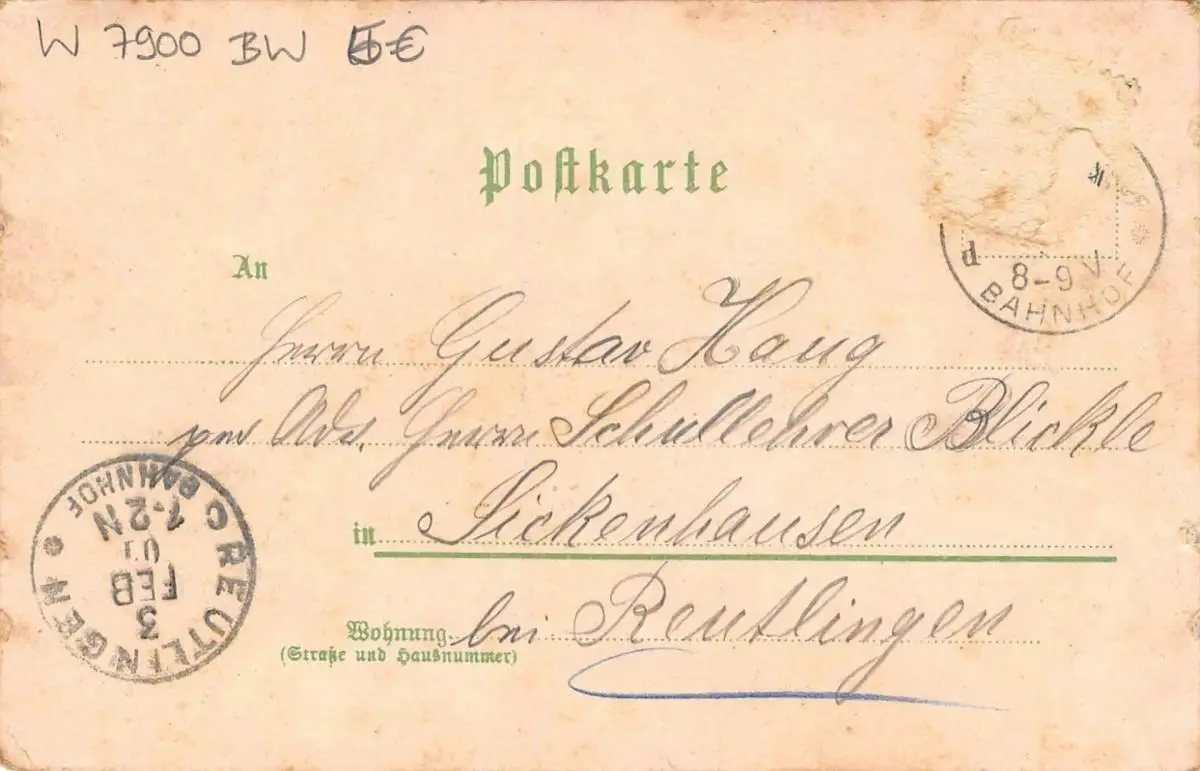 W 7900 BW 6€
Postkarte
8-9 V
BAHNHOF
An
Herrn Gustav Haug
per Ads. Herrn Schullehrer Blickle
in Sickenhausen
Wohnung bei Reutlingen
(Straße und Hausnummer)
REUTLINGEN C
BAHNHOF
3
FEB
01
1-2 N